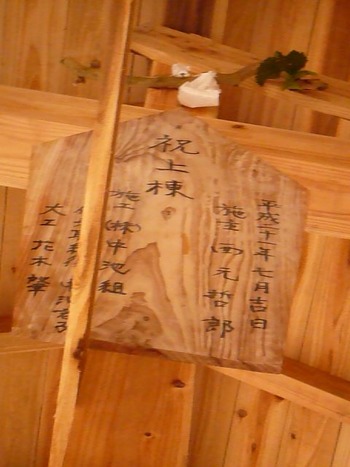 平成二十一年七月吉日
施主 西元 哲郎
祝上棟
施工(株)中池組
大工 花木 肇